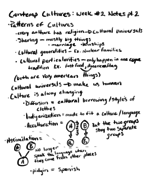 Contemp Cultures: Week #2, Notes pt.2
Patterns of Culture
- every culture has religion → cultural universals
Sharing → mostly big things
- marriage
Cultural generalities → Ex. nuclear families
Cultural particularities → only happen in one
tradition Ex.
(both are very American things)
Cultural universals → make us human
Culture is always changing
- Diffusion = cultural borrowing/styles of
clothes
- Indigenization: made to fit a culture/language
- Acculturation =
but the two groups
stay two separate
groups
- Assimilation:
no longer
speak the language when
they come from other places
- pidgin = Spanish